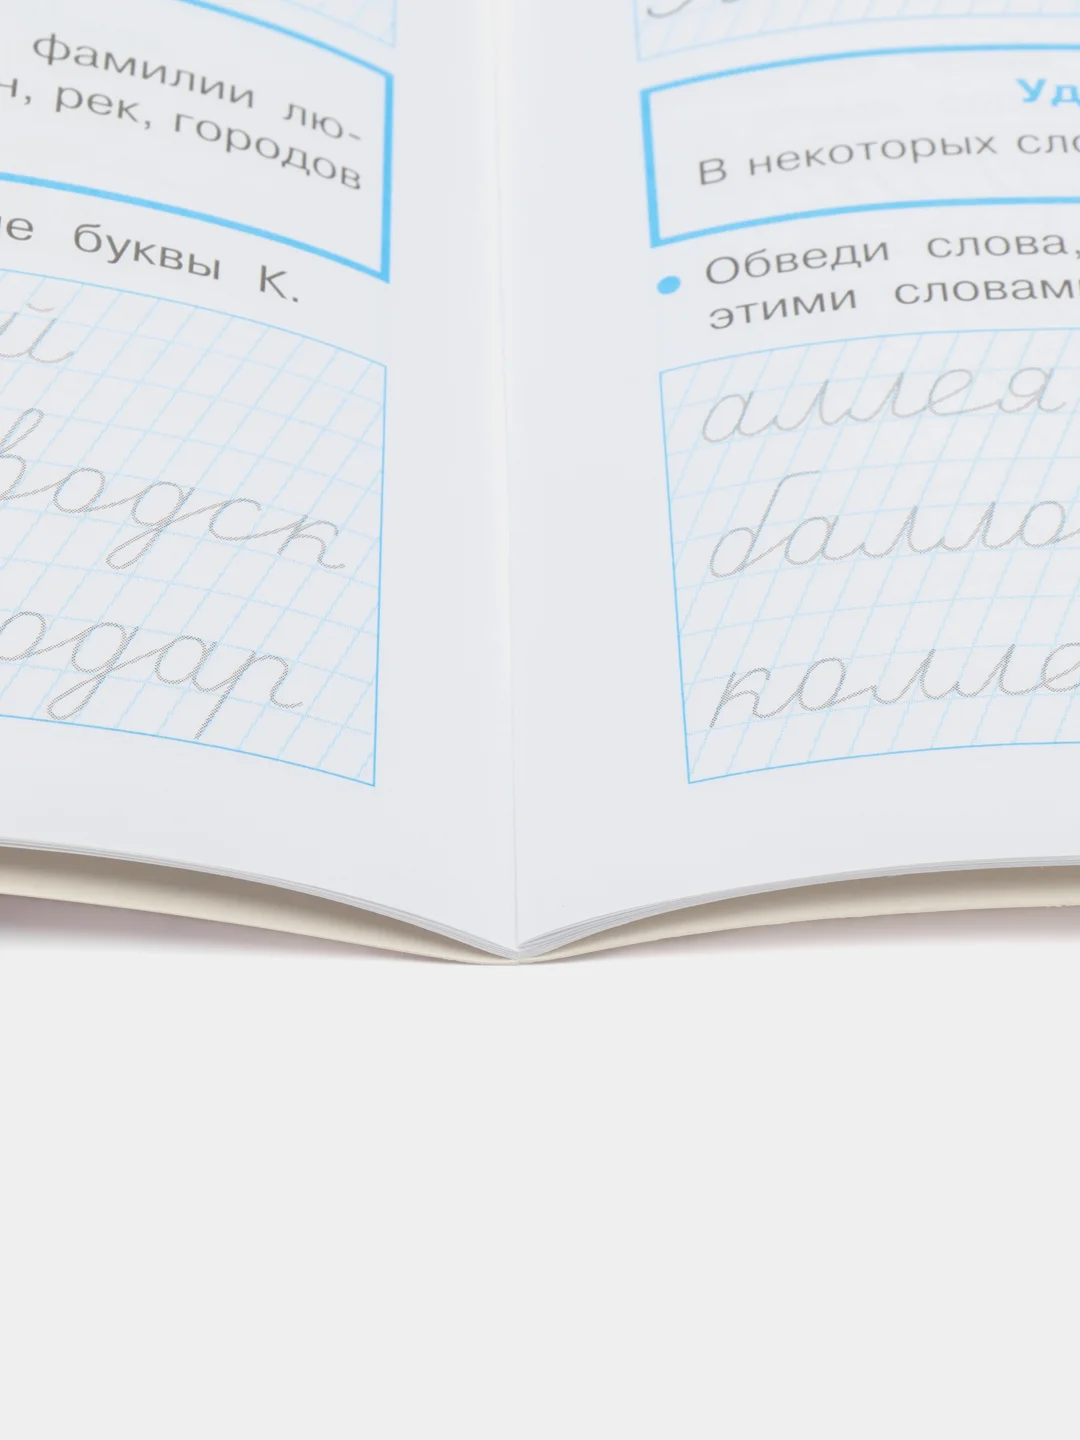 фамилии лю-
н, рек, городов
ие буквы К.
ий
водск
одар
Уд
В некоторых сло
Обведи слова,
этими словами
аллея
балло
колле